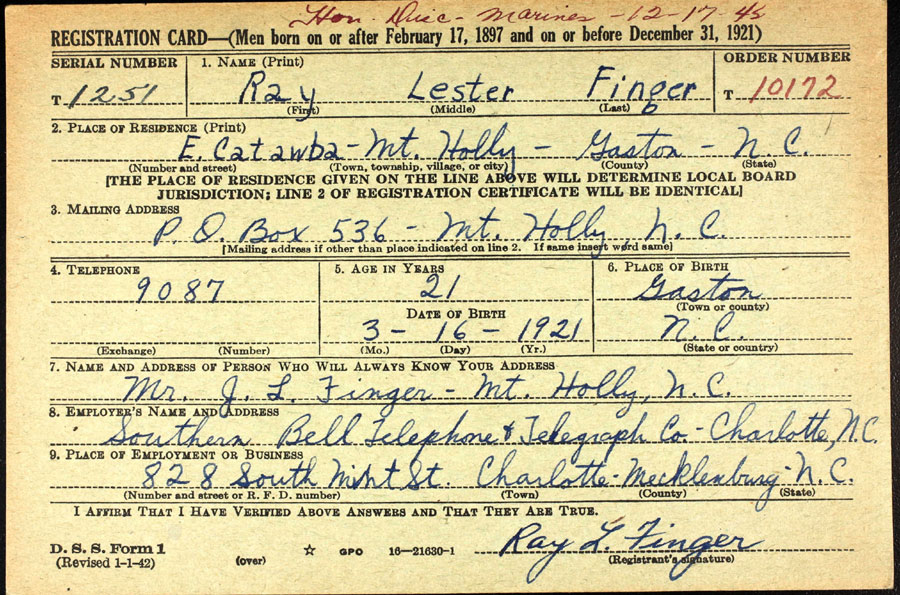 Hon. Disc - Marines - 12-17-45
REGISTRATION CARD—(Men born on or after February 17, 1897 and on or before December 31, 1921)
SERIAL NUMBER 1. NAME (Print) ORDER NUMBER
T 1251 Ray Lester Finger T 10172
(First) (Middle) (Last)
2. PLACE OF RESIDENCE (Print)
E. Catawba - Mt. Holly - Gaston - N. C.
(Number and street) (Town, township, village, or city) (County) (State)
[THE PLACE OF RESIDENCE GIVEN ON THE LINE ABOVE WILL DETERMINE LOCAL BOARD
JURISDICTION; LINE 2 OF REGISTRATION CERTIFICATE WILL BE IDENTICAL]
3. MAILING ADDRESS
P. O. Box 536 - Mt. Holly, N. C.
[Mailing address if other than place indicated on line 2. If same insert word same]
4. TELEPHONE 5. AGE IN YEARS 6. PLACE OF BIRTH
9087 21 Gaston
(Town or county)
DATE OF BIRTH
3 - 16 - 1921 N. C.
(Exchange) (Number) (Mo.) (Day) (Yr.) (State or country)
7. NAME AND ADDRESS OF PERSON WHO WILL ALWAYS KNOW YOUR ADDRESS
Mr. J. L. Finger - Mt. Holly, N. C.
8. EMPLOYER'S NAME AND ADDRESS
Southern Bell Telephone & Telegraph Co - Charlotte, N.C.
9. PLACE OF EMPLOYMENT OR BUSINESS
828 South Mint St. Charlotte - Mecklenburg - N. C.
(Number and street or R. F. D. number) (Town) (County) (State)
I AFFIRM THAT I HAVE VERIFIED ABOVE ANSWERS AND THAT THEY ARE TRUE.
Ray L. Finger
D. S. S. Form 1 (Registrant's signature)
(Revised 1-1-42) (over) ☆ GPO 16—21630-1